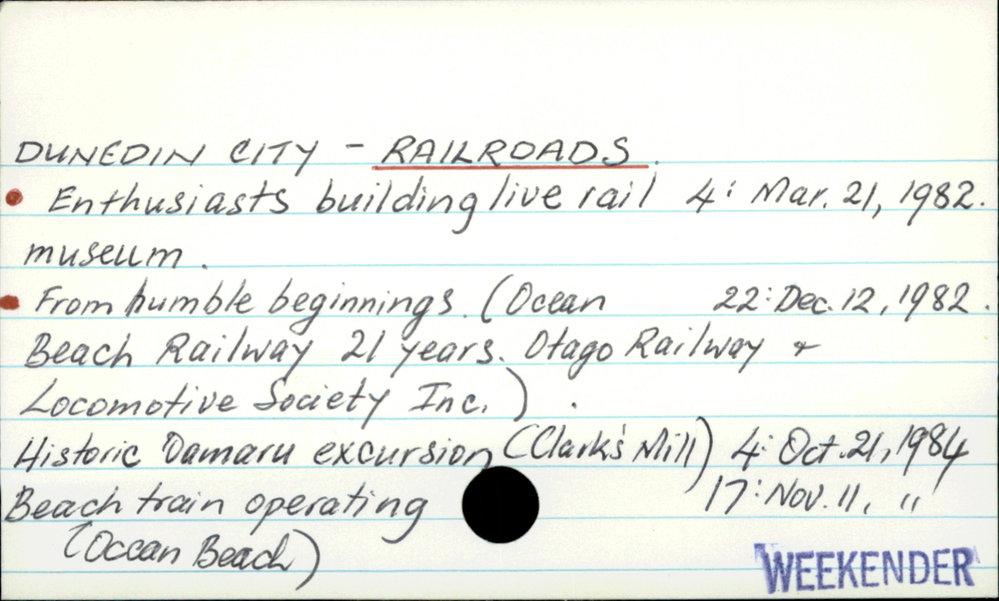 DUNEDIN CITY - RAILROADS.
• Enthusiasts building live rail 4: Mar. 21, 1982.
museum.
• From humble beginnings. (Ocean 22: Dec. 12, 1982.
Beach Railway 21 years. Otago Railway &
Locomotive Society Inc.).
Historic Oamaru excursion (Clark's Mill) 4: Oct. 21, 1984
Beach train operating 17: Nov. 11, "
(Ocean Beach)
WEEKENDER